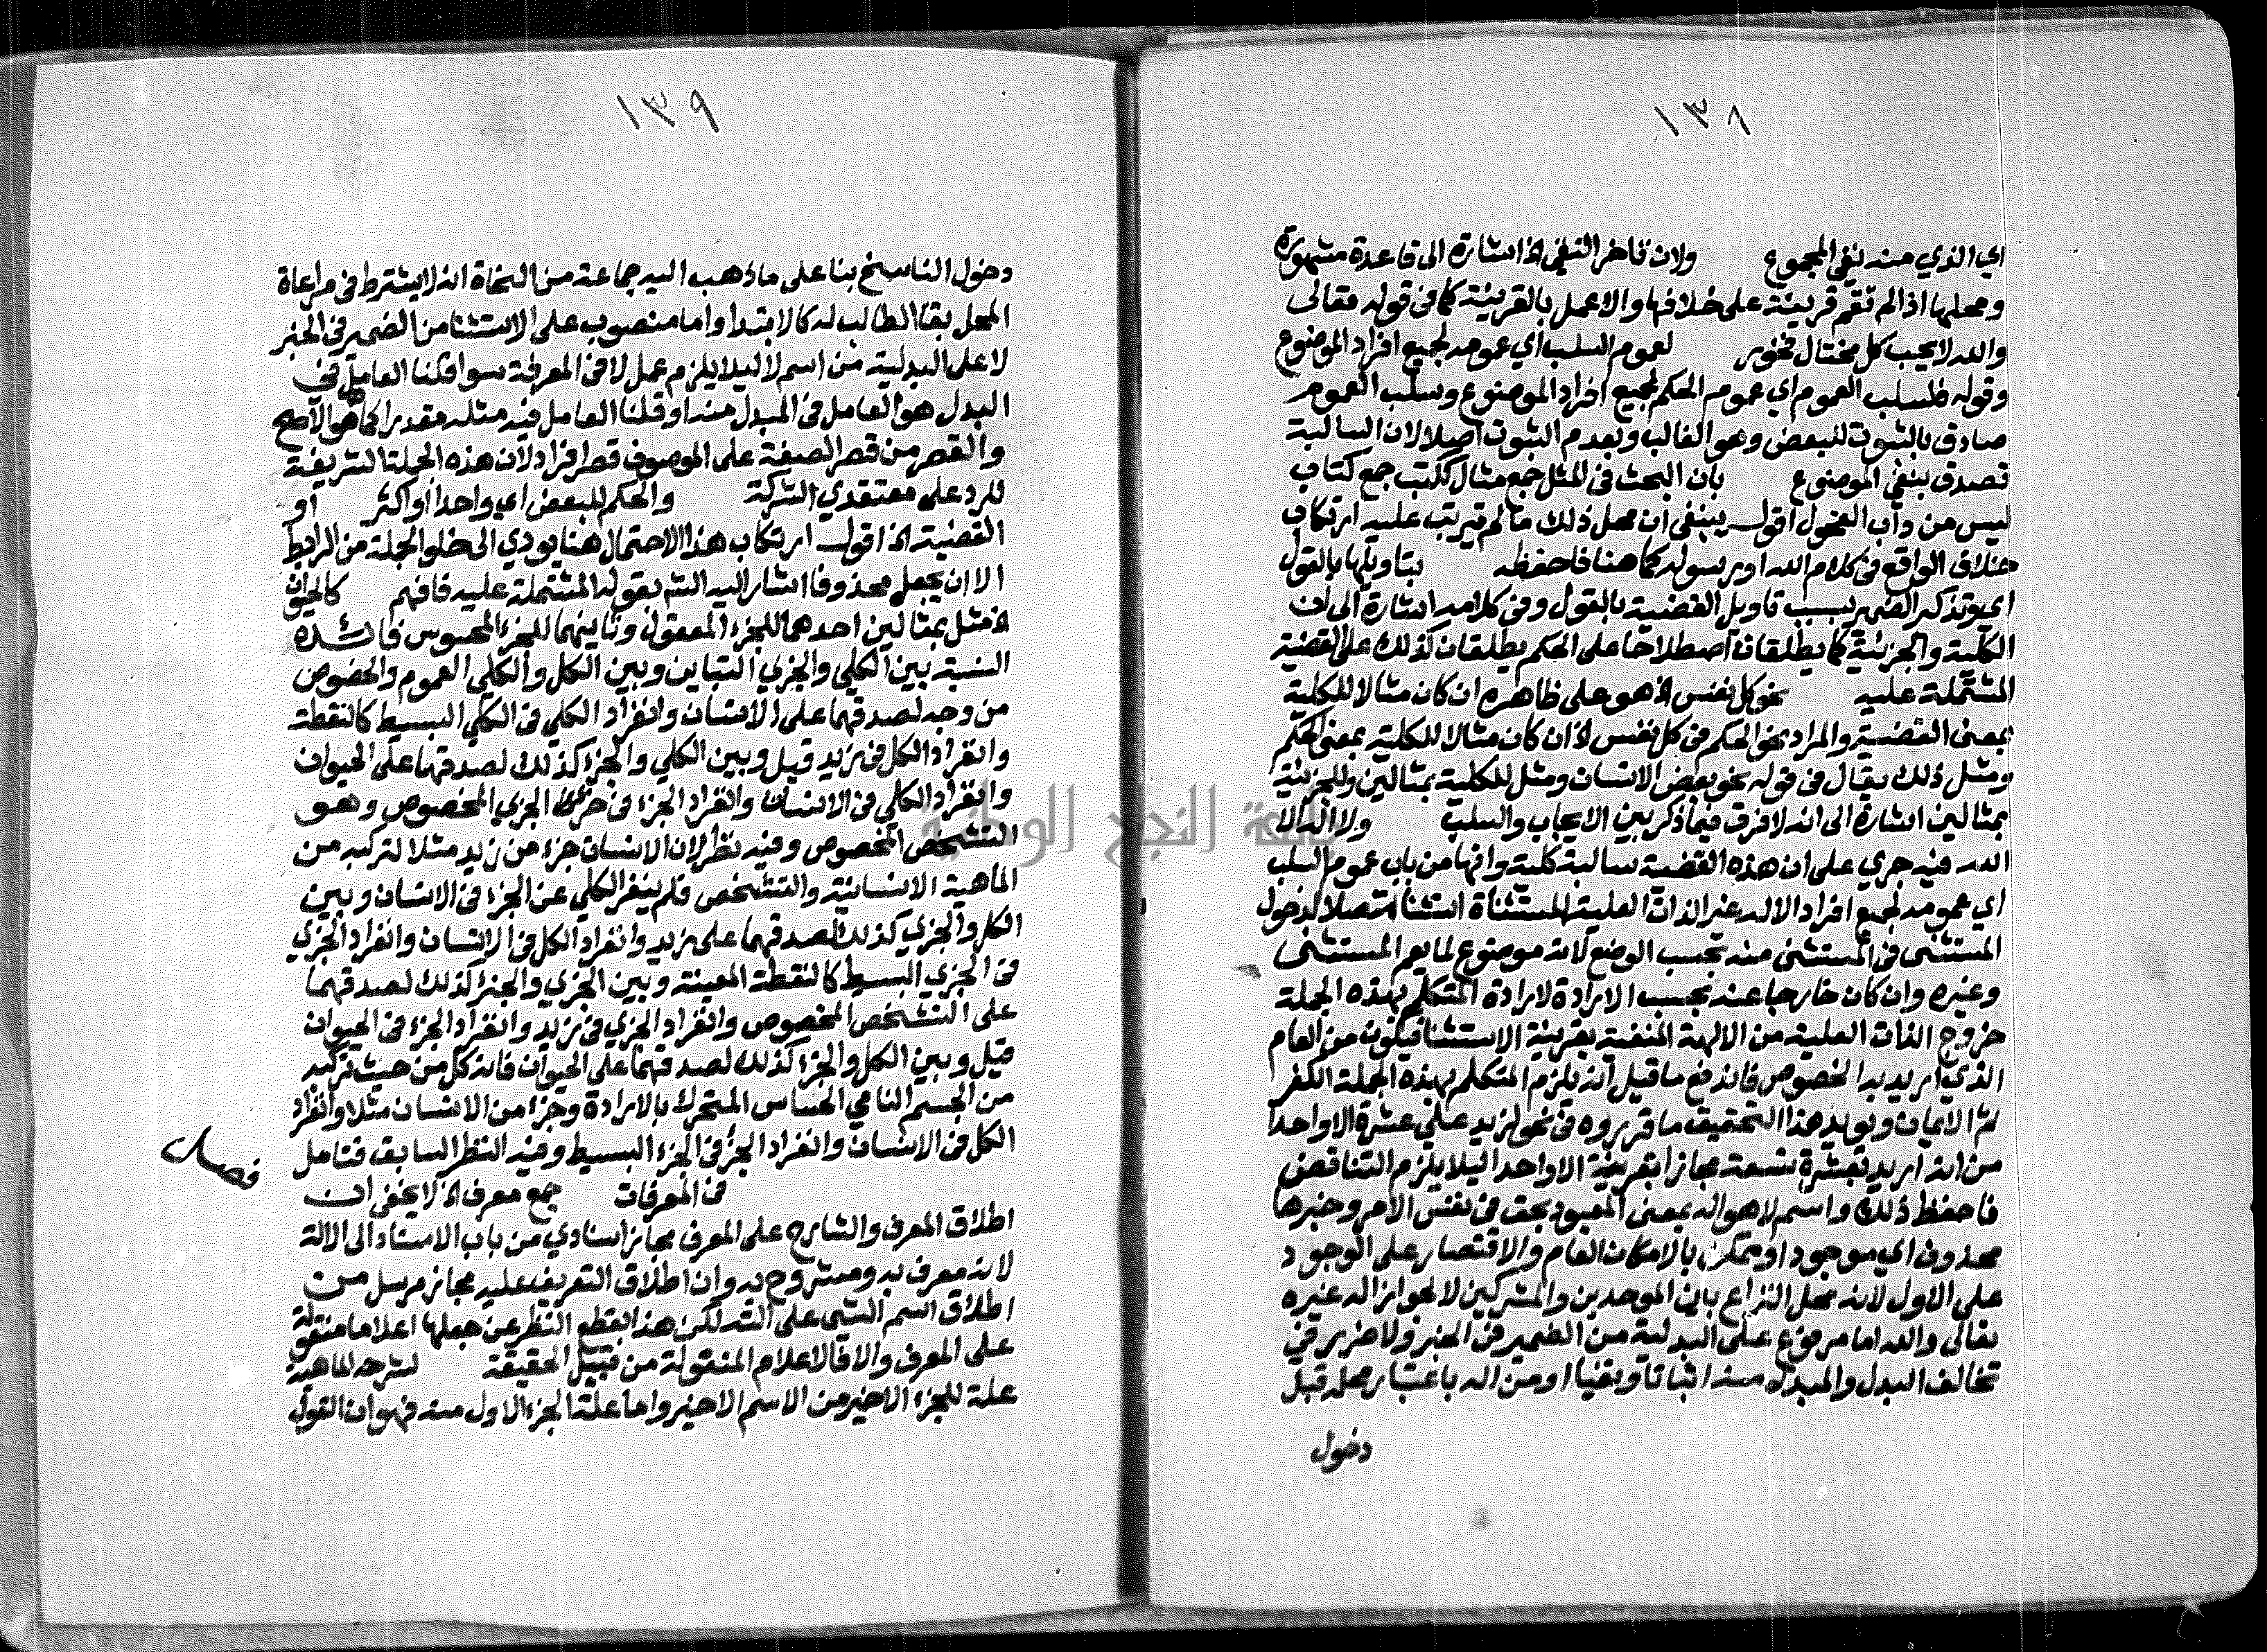 ١٣٨
اي الذي منه نفي المجموع ولان تاخر النفي اﻫ اشارة الى قاعدة مشهورة
ومحلها اذا لم تقم قرينة على خلافها والا عمل بالقرينة كما في قوله تعالى
والله لا يحب كل مختال فخور لعموم السلب اي عمومه لجميع افراد الموضوع
وقوله فلسلب العموم اي عموم الحكم لجميع افراد الموضوع وسلب العموم
صادق بالثبوت للبعض وهو الغالب وبعدم الثبوت اصلا لان السالبة
تصدق بنفي الموضوع بان البحث في المثل جمع مثال ككتب جمع كتاب
ليس من داب الفحول اقول ينبغي ان محل ذلك ما لم يترتب عليه ارتكاب
خلاف الواقع في كلام الله او رسوله كما هنا فاحفظه بتاويلها بالقول
اي وتذكير الضمير بسبب تاويل القضية بالقول وفي كلامه اشارة الى ان
الكلية والجزئية كما يطلقان اصطلاحا على الحكم يطلقان كذلك على القضية
المشتملة عليه نحو كل نفس اﻫ هو على ظاهره ان كان مثالا للكلية
بمعنى القضية والمراد نحو الحكم في كل نفس اﻫ ان كان مثالا للكلية بمعنى الحكم
ومثل ذلك يقال في قوله نحو بعض الانسان ومثل للكلية بمثالين وللجزئية
بمثالين اشارة الى انه لا فرق فيما ذكر بين الايجاب والسلب ولا اله الا
الله فيه جري على ان هذه القضية سالبة كلية وانها من باب عموم السلب
اي عمومه لجميع افراد الاله غير الذات العلية المستثناة استثناء متصلا لدخول
المستثنى في المستثنى منه بحسب الوضع لانه موضوع لما يعم المستثنى
وغيره وان كان خارجا عنه بحسب الارادة لارادة المتكلم بهذه الجملة
خروج الذات العلية من الالهة المنفية بقرينة الاستثنا فيكون من العام
الذي اريد به الخصوص فاندفع ما قيل انه يلزم المتكلم بهذه الجملة الكفر
ثم الايمان ويويد هذا التحقيق ما قرروه في نحو لزيد علي عشرة الا واحدا
من انه اريد بعشرة تسعة مجازا بقرينة الا واحدا ليلا يلزم التناقض
فاحفظ ذلك واسم لا هو اله بمعنى المعبود بحق في نفس الامر وخبرها
محذوف اي موجود او ممكن بالامكان العام والاقتصار على الوجود
على الاول لانه محل النزاع بين الموحدين والمشركين لا لجواز اله غيره
تعالى والله اما مرفوع على البدلية من الضمير في الخبر ولا ضرر في
تخالف البدل والمبدل منه اثباتا ونفيا او من اله باعتبار محله قبل
دخول
١٣٩
دخول الناسخ بنا على ما ذهب اليه جماعة من النحاة انه لا يشترط في مراعاة
المحل بقا الطالب له كالابتدا واما منصوب على الاستثنا من الضمير في الخبر
لا على البدلية من اسم لا ليلا يلزم عمل لا في المعرفة سوا قلنا العامل في
البدل هو العامل في المبدل منه او قلنا العامل فيه مثله مقدرا كما هو الاصح
والقصر من قصر الصفة على الموصوف قصر افراد لان هذه الجملة الشريفة
للرد على معتقدي الشركة والحكم للبعض اي واحدا او اكثر او
القضية اﻫ اقول ارتكاب هذا الاحتمال هنا يودي الى خلو الجملة من الرابط
الا ان يجعل محذوفا اشار اليه الش بقوله المشتملة عليه فافهم كالحيوان
اﻫ مثل بمثالين احدهما للجزء المعقول وثانيهما للجزء المحسوس فائدة
النسبة بين الكلي والجزي التباين وبين الكل والكلي العموم والخصوص
من وجه لصدقهما على الانسان وانفراد الكلي في الكلي البسيط كالنقطة
وانفراد الكل في زيد قيل وبين الكلي والجزء كذلك لصدقهما على الحيوان
وانفراد الكلي في الانسان وانفراد الجزء في جزء الجزي المخصوص وهو
التشخص المخصوص وفيه نظر لان الانسان جزء من زيد مثلا لتركبه من
الماهية الانسانية والتشخص فلم ينفر الكلي عن الجزء في الانسان وبين
الكل والجزي كذلك لصدقهما على زيد وانفراد الكل في الانسان وانفراد الجزي
في الجزي البسيط كالنقطة المعينة وبين الجزي والجزء كذلك لصدقهما
على التشخص المخصوص وانفراد الجزي في زيد وانفراد الجزء في الحيوان
قيل وبين الكل والجزء كذلك لصدقهما على الحيوان فانه كل من حيث تركبه
من الجسم النامي الحساس المتحرك بالارادة وجزء من الانسان مثلا وانفراد
الكل في الانسان وانفراد الجزء في الجزء البسيط وفيه النظر السابق فتامل
فصل
في المعرفات جمع معرف اﻫ لا يخفى ان
اطلاق المعرف والشارح على المعرف مجاز اسنادي من باب الاسناد الى الالة
لانه معرف به ومشروح به وان اطلاق التعريف عليه مجاز مرسل من
اطلاق اسم الشي على اثره لكن هذا بقطع النظر عن جعلها اعلاما منقولة
على المعرف والا فالاعلام المنقولة من قبيل الحقيقة لشرحه الماهية
علة للجزء الاخير من الاسم الاخير واما علة الجزء الاول منه فهو ان القول
جامعة النجاح الوطنية